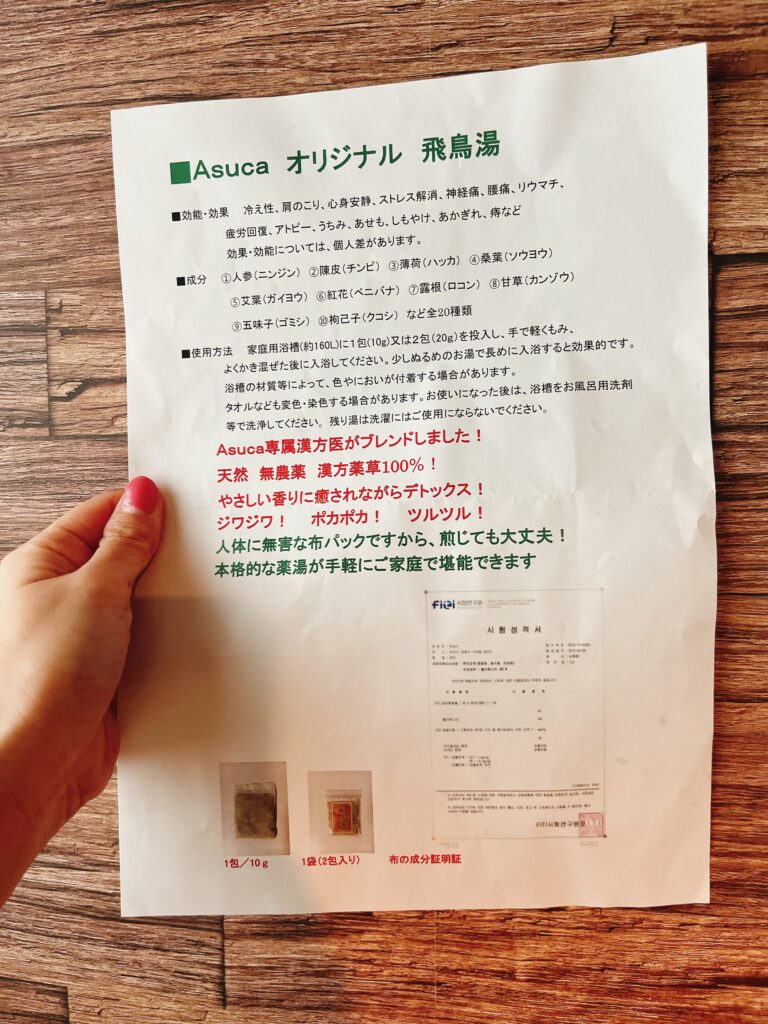 ■Asuca オリジナル 飛鳥湯
■効能・効果 冷え性、肩のこり、心身安静、ストレス解消、神経痛、腰痛、リウマチ、
疲労回復、アトピー、うちみ、あせも、しもやけ、あかぎれ、痔など
効果・効能については、個人差があります。
■成分 ①人参(ニンジン) ②陳皮(チンピ) ③薄荷(ハッカ) ④桑葉(ソウヨウ)
⑤艾葉(ガイヨウ) ⑥紅花(ベニバナ) ⑦露根(ロコン) ⑧甘草(カンゾウ)
⑨五味子(ゴミシ) ⑩枸己子(クコシ) など全20種類
■使用方法 家庭用浴槽(約160L)に1包(10g)又は2包(20g)を投入し、手で軽くもみ、
よくかき混ぜた後に入浴してください。少しぬるめのお湯で長めに入浴すると効果的です。
浴槽の材質等によって、色やにおいが付着する場合があります。
タオルなども変色・染色する場合があります。お使いになった後は、浴槽をお風呂用洗剤
等で洗浄してください。 残り湯は洗濯にはご使用にならないでください。
Asuca専属漢方医がブレンドしました！
天然 無農薬 漢方薬草100%！
やさしい香りに癒されながらデトックス！
ジワジワ！ ポカポカ！ ツルツル！
人体に無害な布パックですから、煎じても大丈夫！
本格的な薬湯が手軽にご家庭で堪能できます
FITI 시험연구원
시험성적서
FITI시험연구원장
1包／10g
1袋(2包入り)
布の成分証明証